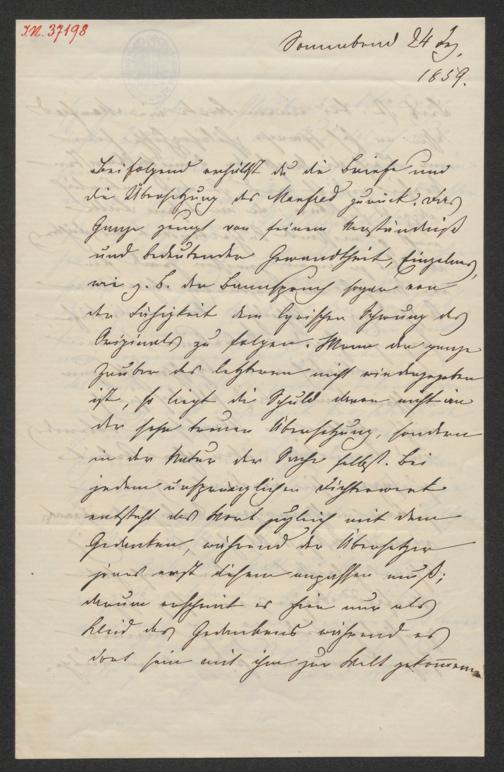 I.N. 37198
Sonnabend 24 Dez.
1859.
Beifolgend erhältst du die Briefe und
die Übersetzung des Manfred zurück. Das
Ganze zeugt von feinem Verständniß
und bedeutender Gewandtheit, Einzelnes,
wie z. B. der Bannspruch sogar von
der Fähigkeit dem lyrischen Schwung des
Originals zu folgen. Wenn der ganze
Zauber des letzteren nicht wiedergegeben
ist, so liegt die Schuld davon nicht an
der sehr treuen Übersetzung, sondern
in der Natur der Sache selbst. Bei
jedem ursprünglichen Dichterwerk
entsteht das Wort zugleich mit dem
Gedanken, während der Übersetzer
jenes erst diesem anpassen muß;
darum erscheint es hier nur als
Kleid des Gedankens während es
dort sein mit ihm zur Welt gekommene